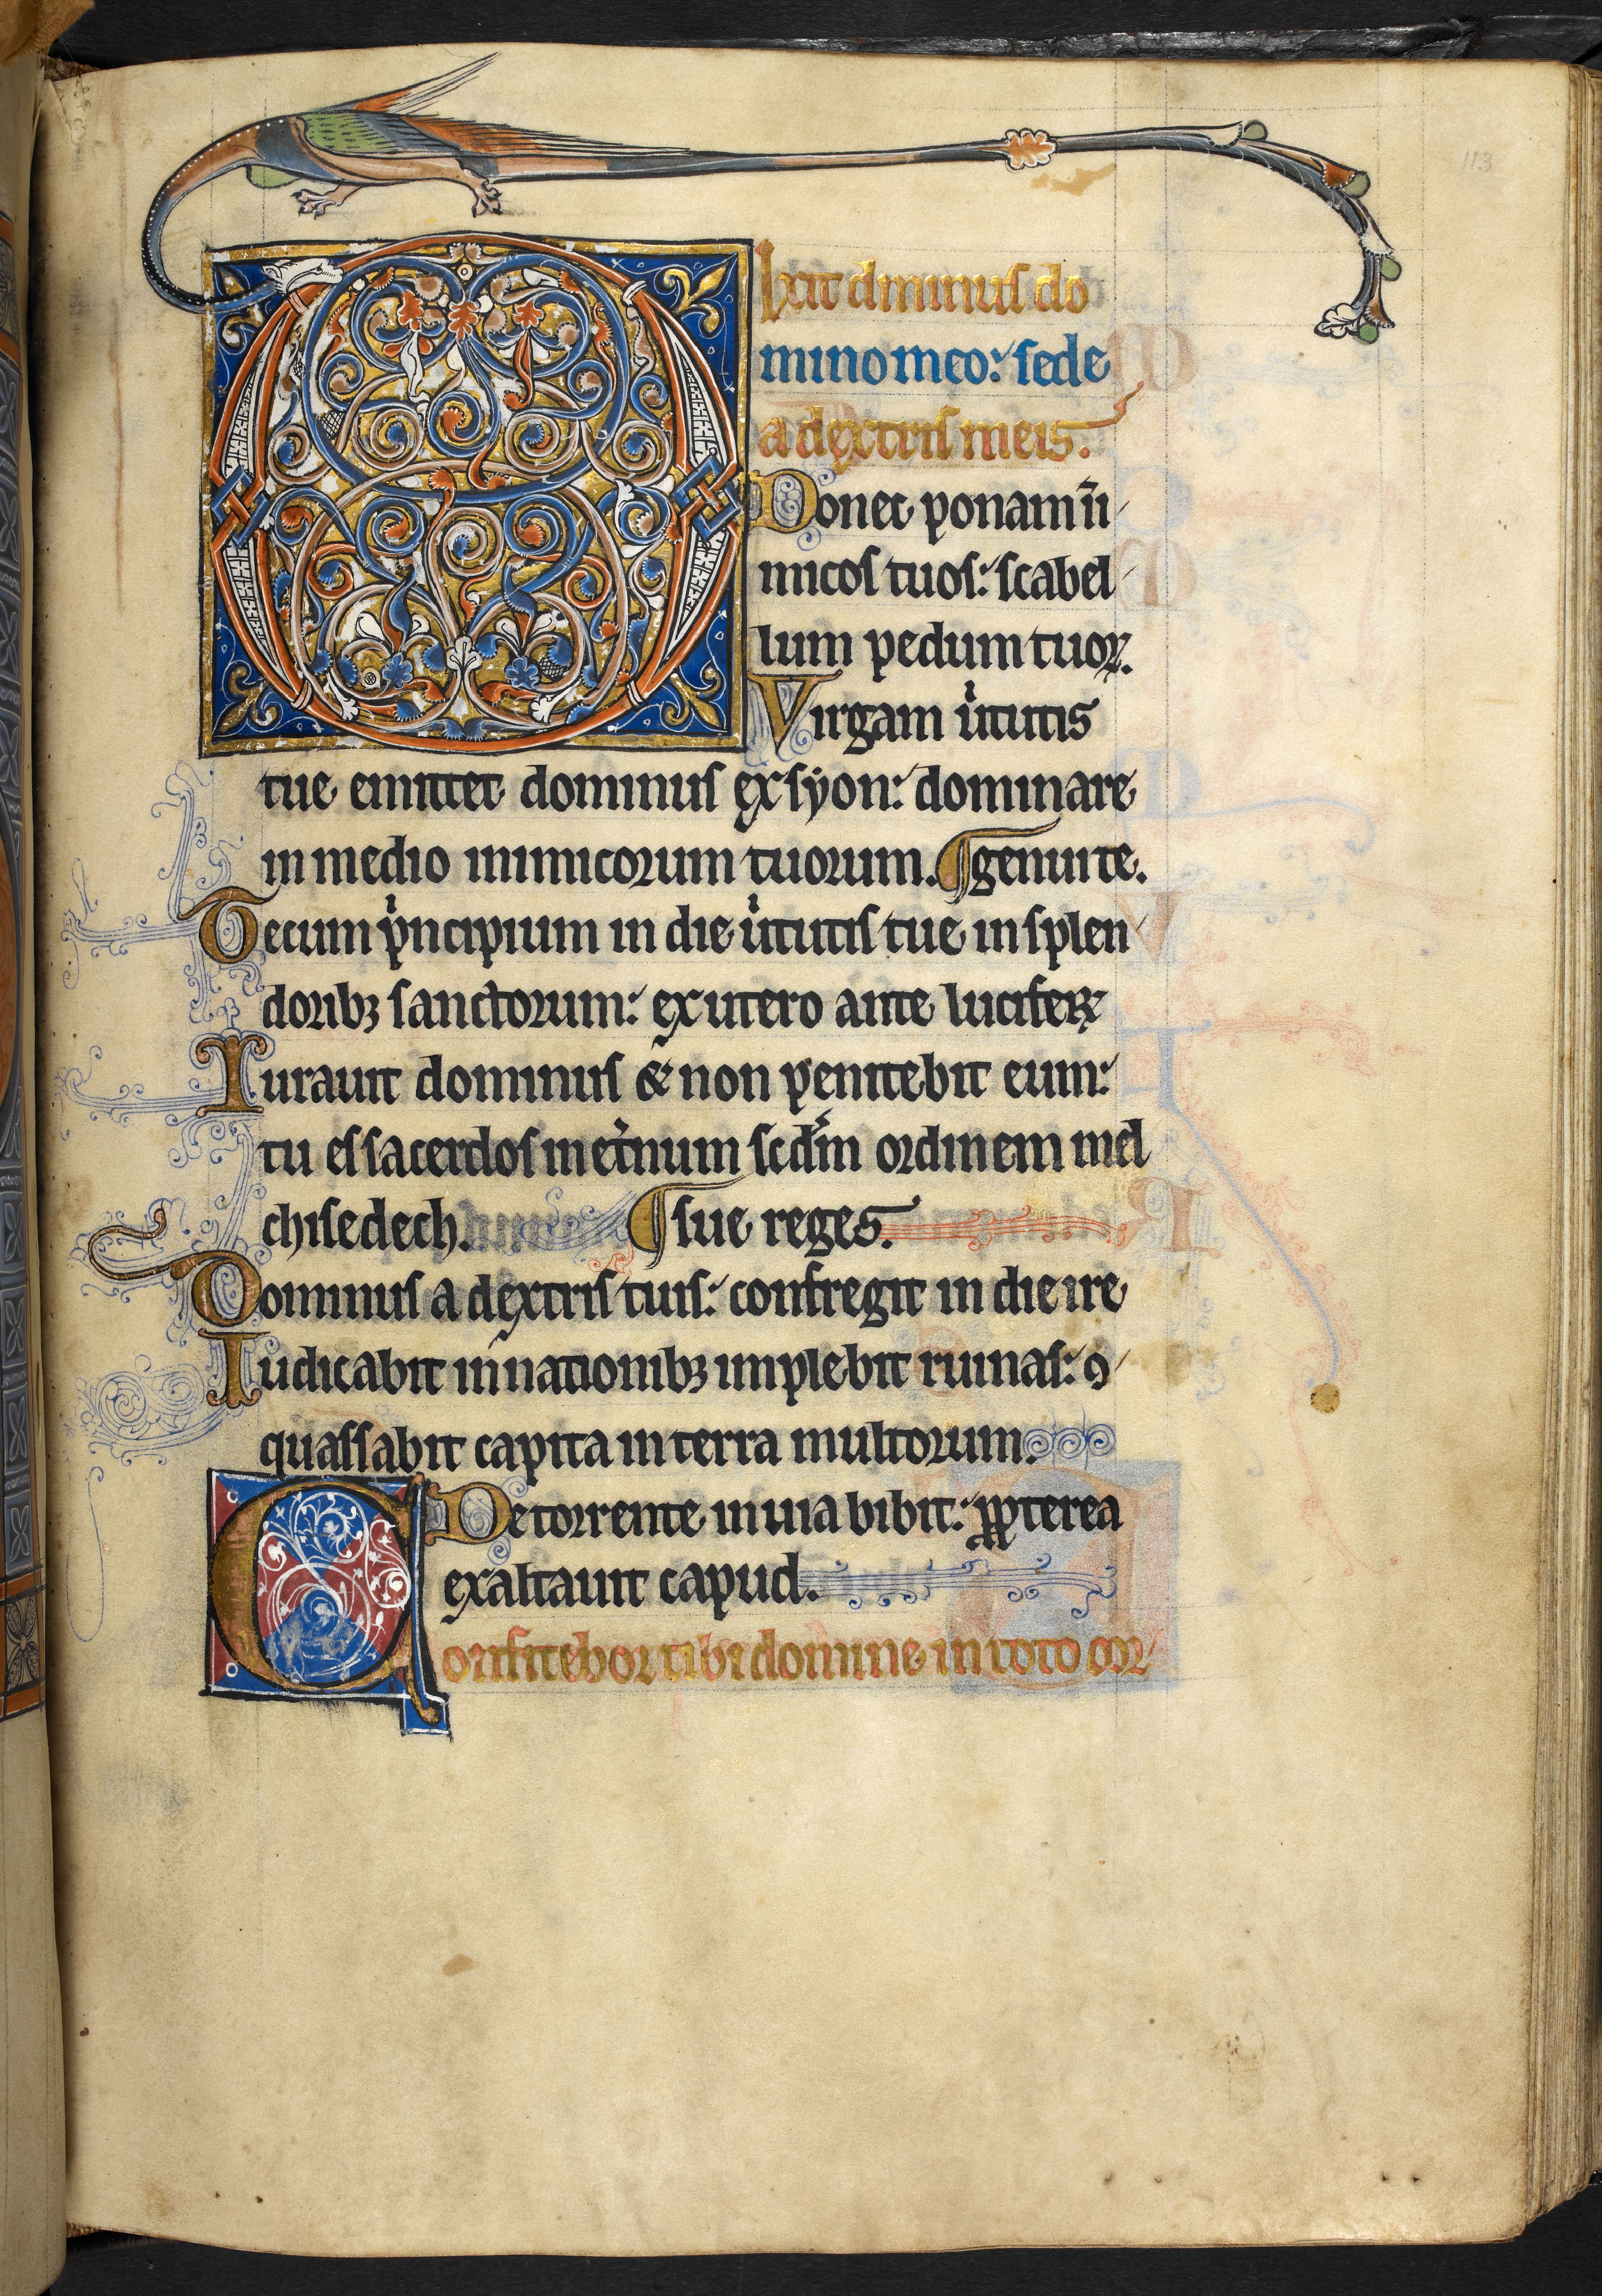 113
Dixit dminus do
mino meo: sede
a dextris meis.
Donec ponam ini
micos tuos: scabel
lum pedum tuoꝝ.
Virgam uͥtutis
tue emittet dominus ex syon: dominare
in medio inimicorum tuorum. ¶ genui te.
Tecum pͥncipium in die uͥtutis tue in splen
doribꝫ sanctorum: ex utero ante luciferꝝ
Iurauit dominus & non penitebit eum:
tu es sacerdos in et̾num scd̾m ordinem mel
chisedech. ¶ sue reges.
Dominus a dextris tuis: confregit in die ire
Iudicabit in nationibꝫ implebit ruinas: ꝯ
quassabit capita in terra multorum.
De torrente in uia bibit: ꝓpterea
exaltauit capud.
Confitebor tibi domine in toto cor